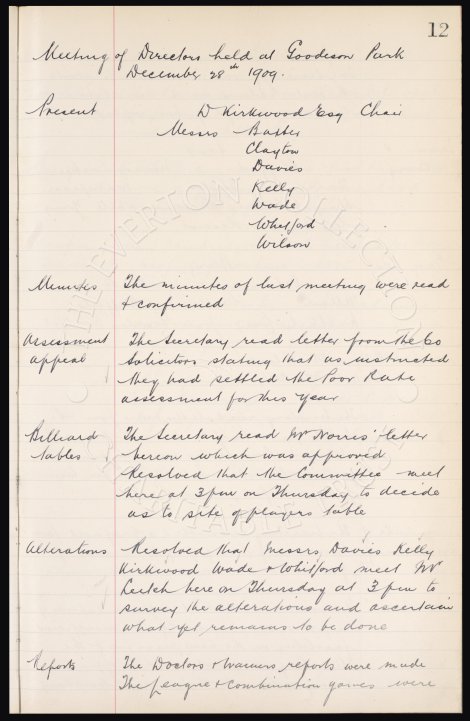 12
Meeting of Directors held at Goodison Park
December 28th 1909.
Present D Kirkwood Esq Chair
Messrs Baxter
Clayton
Davies
Kelly
Wade
Whitford
Wilson
Minutes The minutes of last meeting were read
& confirmed
Assessment The Secretary read letter from The Co
appeal Solicitors stating that as instructed
they had settled the Poor Rate
assessment for this year
Billiard The Secretary read Mr Norris' letter
tables hereon which was approved
Resolved that the Committee meet
here at 3pm on Thursday to decide
as to site of players table
Alterations Resolved that Messrs Davies Kelly
Kirkwood Wade & Whitford meet Mr
Leitch here on Thursday at 3 pm to
survey the alterations and ascertain
what yet remains to be done
Reports The Doctors & trainers reports were made
The League & Combination games were
THE EVERTON COLLECTION
CHARITABLE TRUST